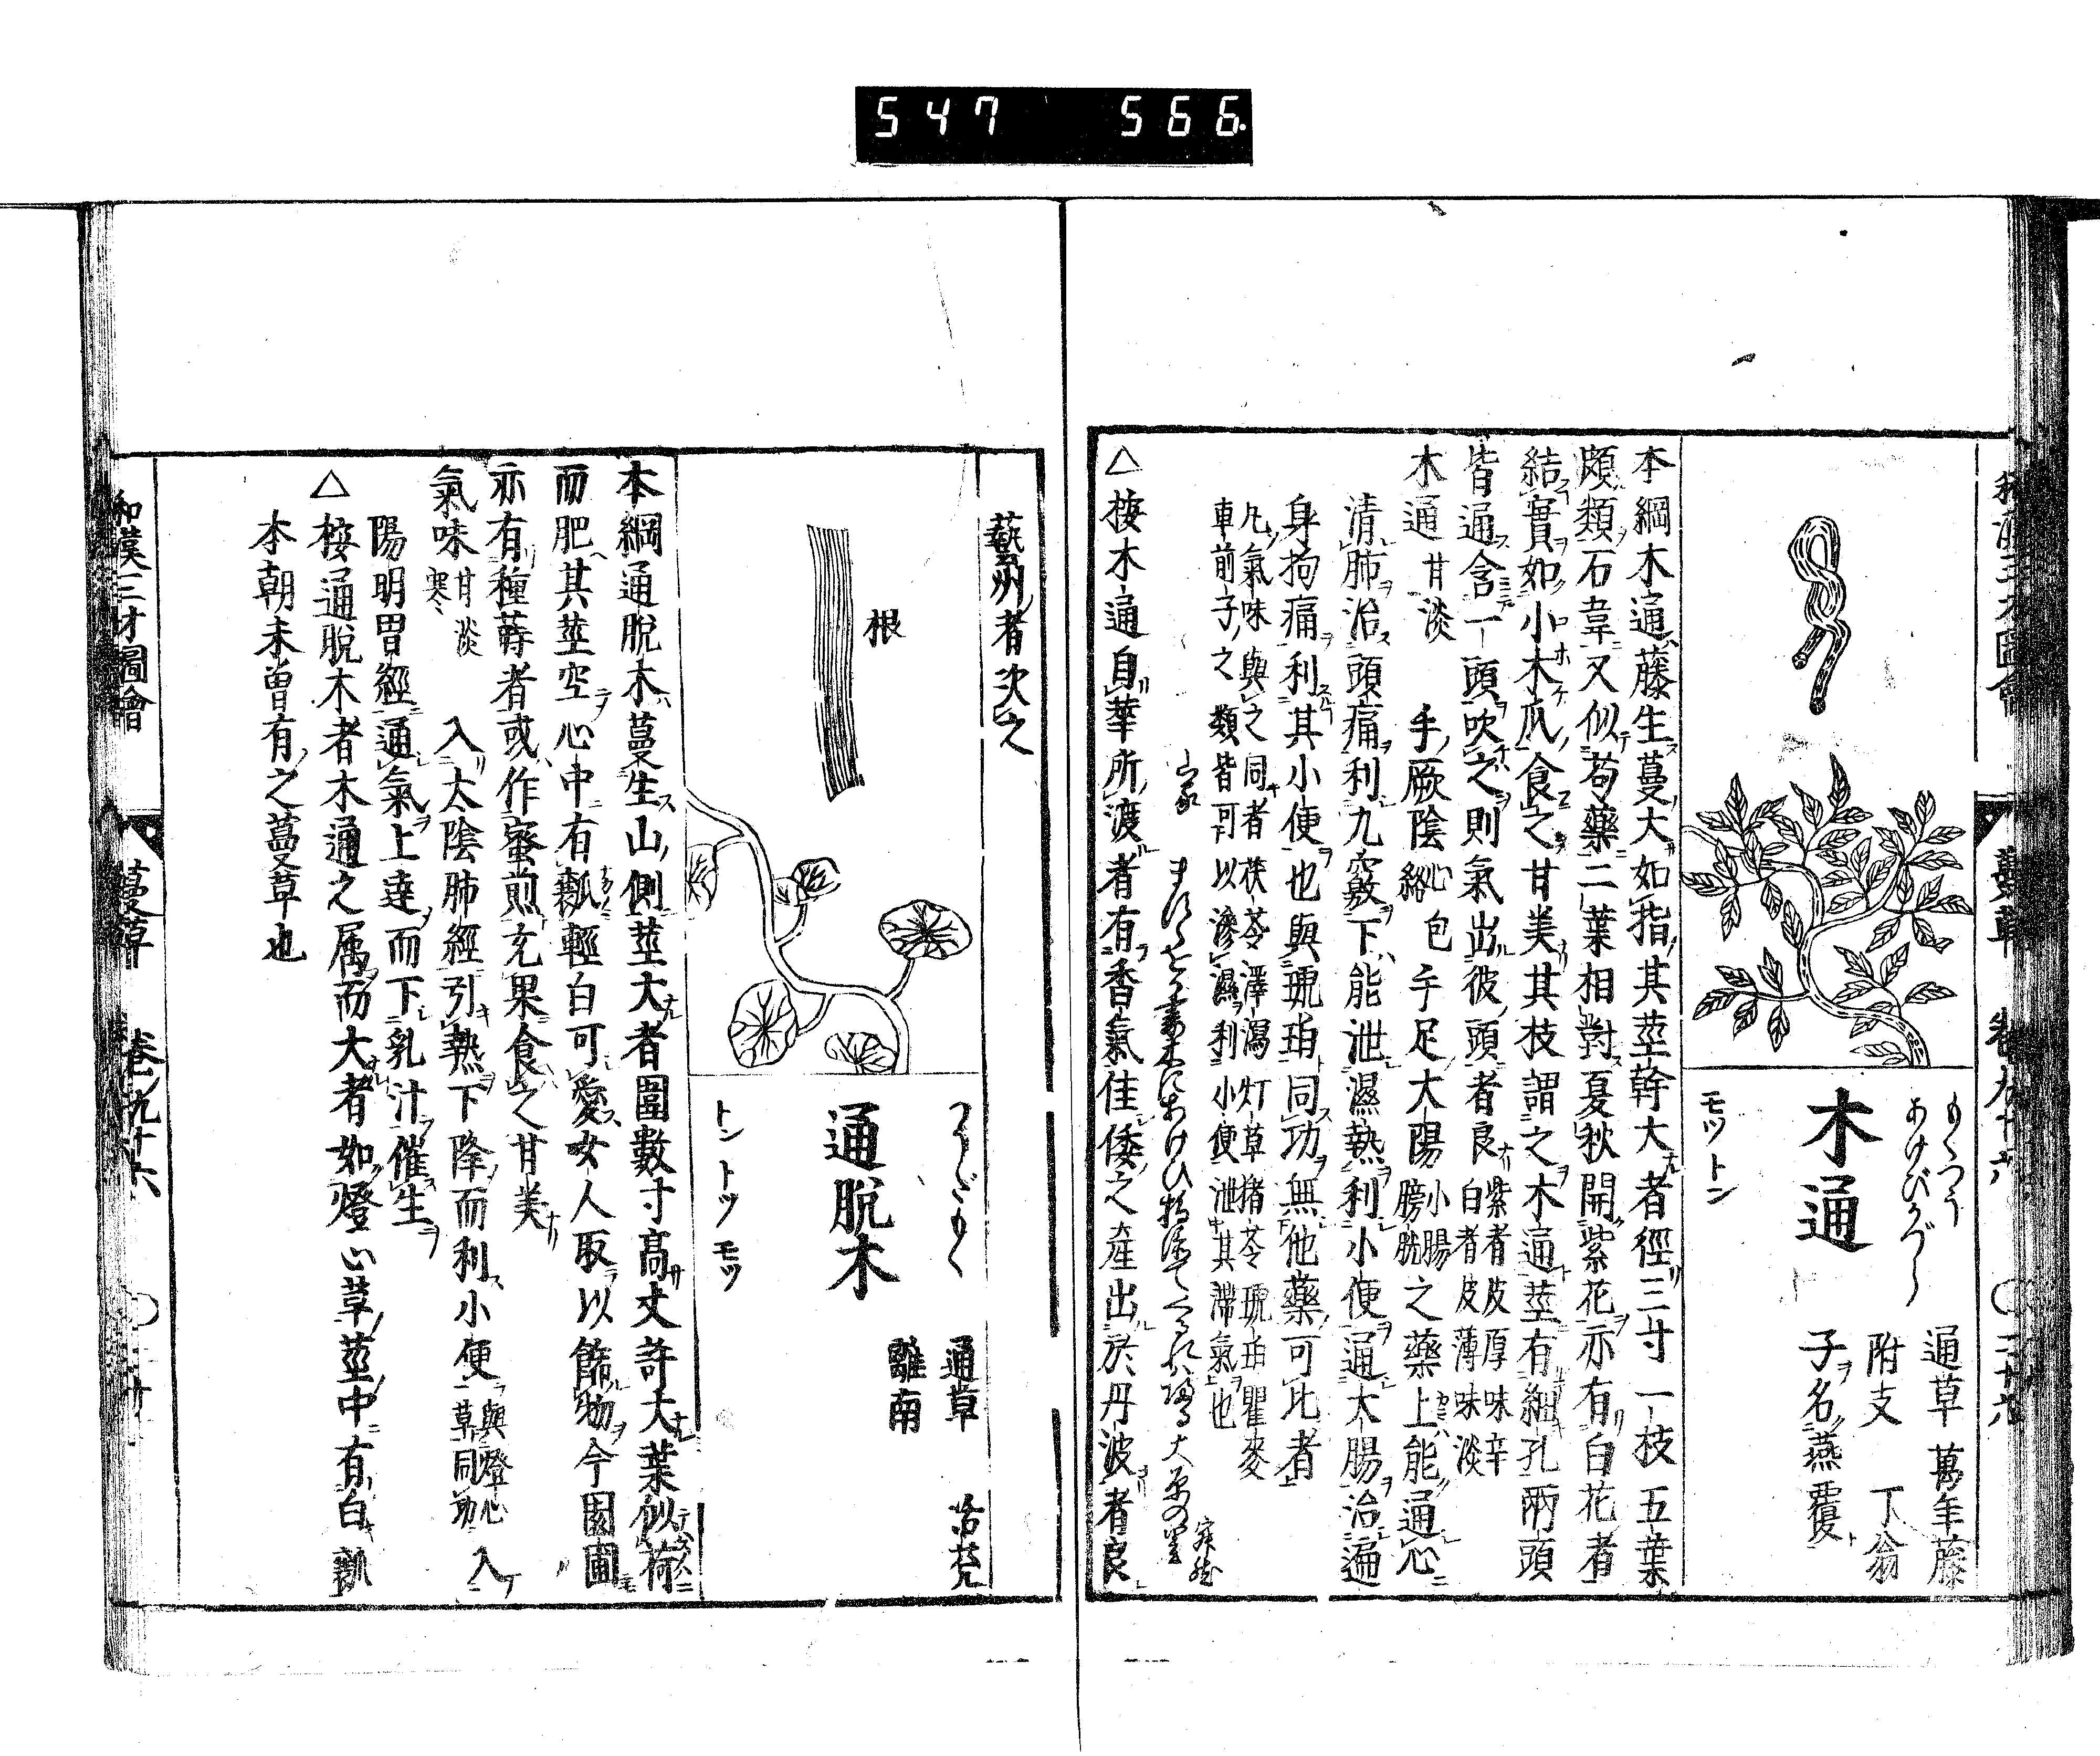 547 566.
和漢三才圖會 蔓草 卷九十六 〇 二十六
もくつう
あけびかづら
木通
モツ トン
通草 萬年藤
附支 丁翁
子ヲ名燕覆ト
本綱木通藤生蔓大如指其莖幹大者徑三寸一枝五葉
頗類石韋又似芍藥二葉相對夏秋開紫花亦有白花者
結實如小木瓜食之甘美其枝謂之木通莖有細孔兩頭
皆通含一頭吹之則氣出彼頭者良紫者皮厚味辛白者皮薄味淡
木通甘淡 手厥陰心包絡手足太陽小腸膀胱之藥上能通心
清肺治頭痛利九竅下能泄濕熱利小便通大腸治遍
身拘痛利其小便也與琥珀同功無他藥可比者
凡氣味與之同者茯苓澤瀉灯草猪苓琥珀瞿麥
車前子之類皆可以滲濕利小便泄其滯氣也
山家
△按木通自華所渡者有香氣佳倭之產出於丹波者良
藝州者次之
根
つうだつもく
通脫木
トン トツ モツ
通草 活莌
離南
本綱通脫木蔓生山側莖大者圍數寸高丈許大葉似荷
而肥其莖空心中有瓤輕白可愛女人取以餙物今園圃
亦有種蒔者或作蜜煎充果食之甘美
氣味甘淡寒 入太陰肺經引熱下降而利小便與燈心草同功入
陽明胃經通氣上達而下乳汁催生
△按通脫木者木通之属而大者如燈心草莖中有白瓤
本朝未曾有之蔓草也
和漢三才圖會 蔓草 卷ノ九十六